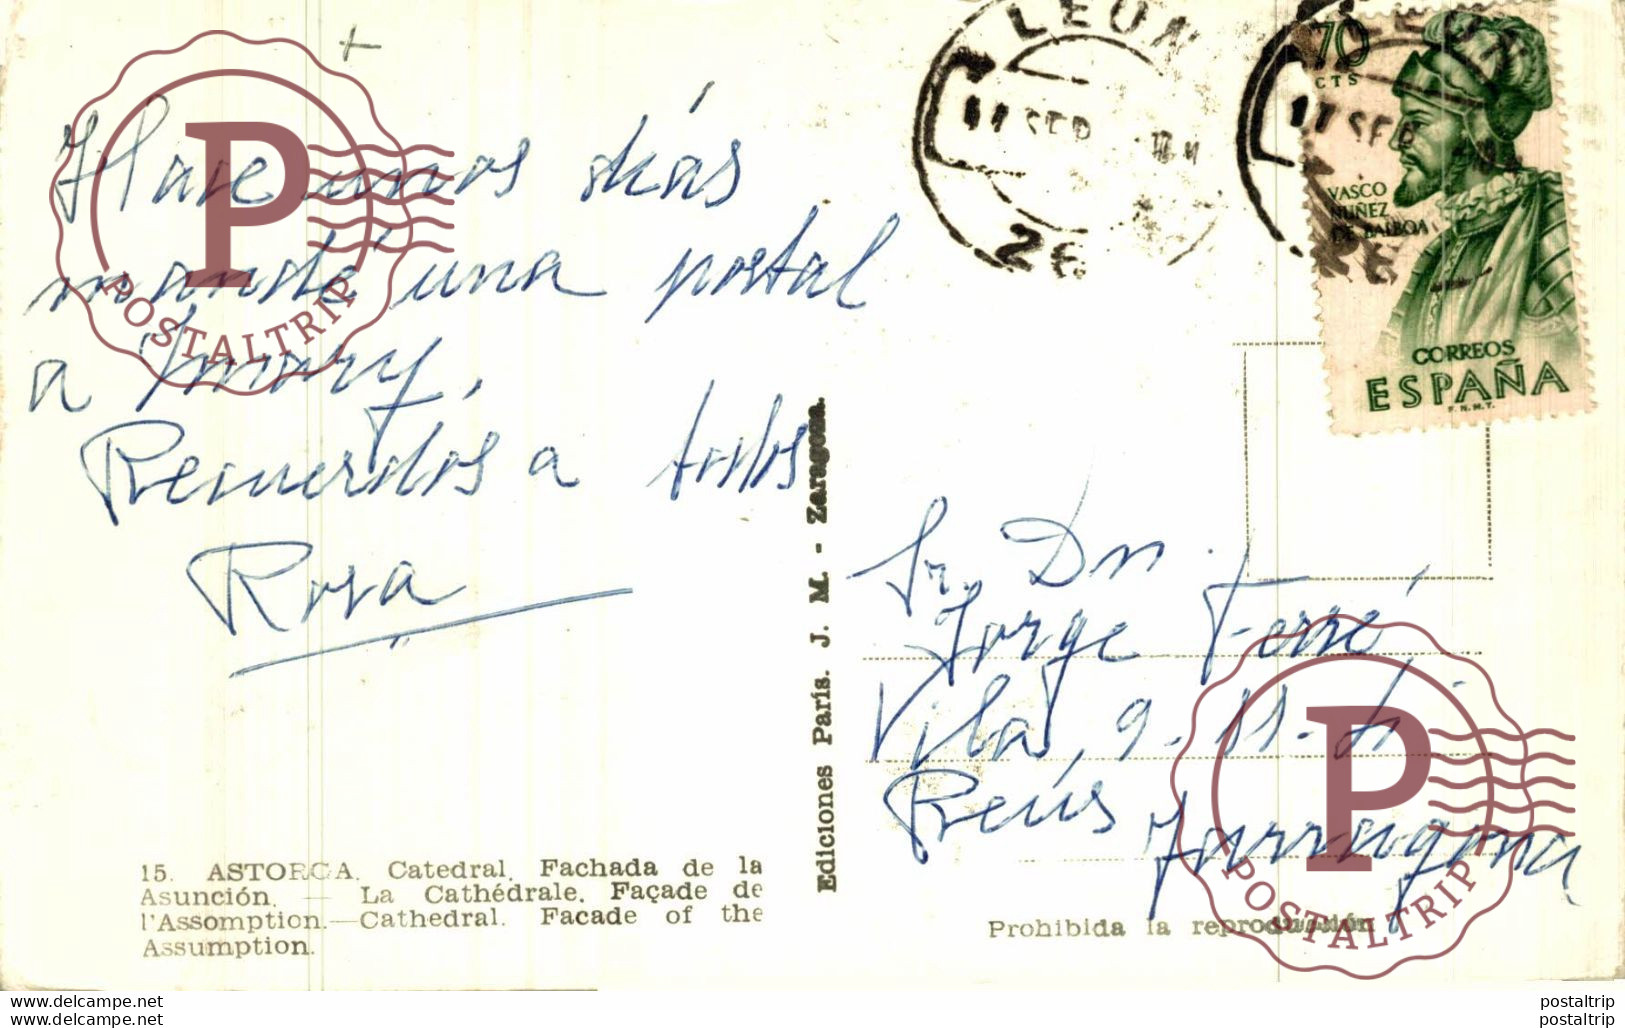 Hace unos días
mandé una postal
a Mary.
Recuerdos a todos
Rosa
15. ASTORGA. Catedral. Fachada de la
Asunción. — La Cathédrale. Façade de
l'Assomption.—Cathedral. Facade of the
Assumption.
Ediciones París. J. M. - Zaragoza.
LEON
SEP
LEON
17 SEP
70
CTS
VASCO
NUÑEZ
DE BALBOA
CORREOS
ESPAÑA
F.N.M.T.
Sr. Dn.
Jorge Ferré
Vilá, 9-11-
Reús
Tarragona
Prohibida la reproducción
P
POSTALTRIP
P
POSTALTRIP
www.delcampe.net
www.delcampe.net
postaltrip
postaltrip